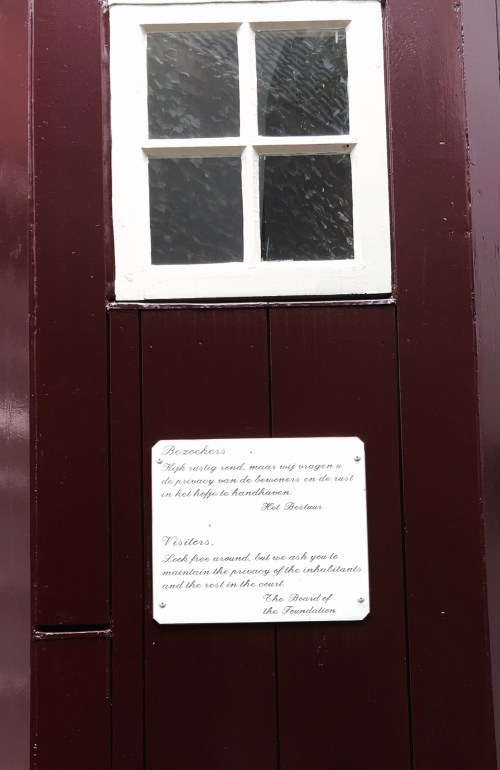 Bezoekers
Kijk rustig rond, maar wij vragen u
de privacy van de bewoners en de rust
in het hofje te handhaven.
Het Bestuur
Visitors,
Look free around, but we ask you to
maintain the privacy of the inhabitants
and the rest in the court.
The Board of
the Foundation